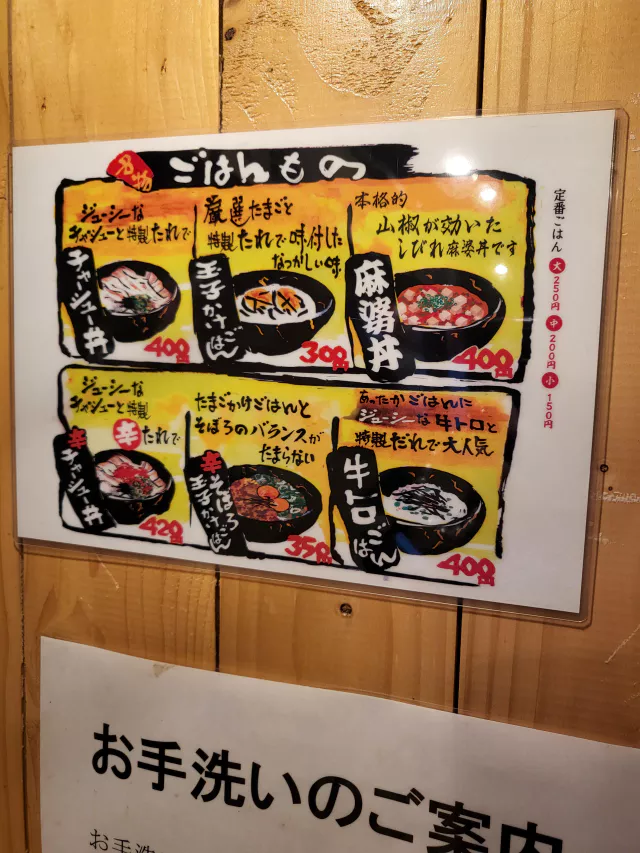 名物
ごはんもの
ジューシーな
チャシューと特製たれで
チャーシュー丼
400円
厳選たまごと
特製たれで味付した
なつかしい味
玉子かけごはん
300円
本格的
山椒が効いた
しびれ麻婆丼です
麻婆丼
400円
ジューシーな
チャシューと特製
辛たれで
辛チャーシュー丼
420円
たまごかけごはんと
そぼろのバランスが
たまらない
辛そぼろ
玉子かけごはん
350円
あったかごはんに
ジューシーな牛トロと
特製だれで大人気
牛トロごはん
400円
定番ごはん
大250円 中200円 小150円
お手洗いのご案内
お手洗